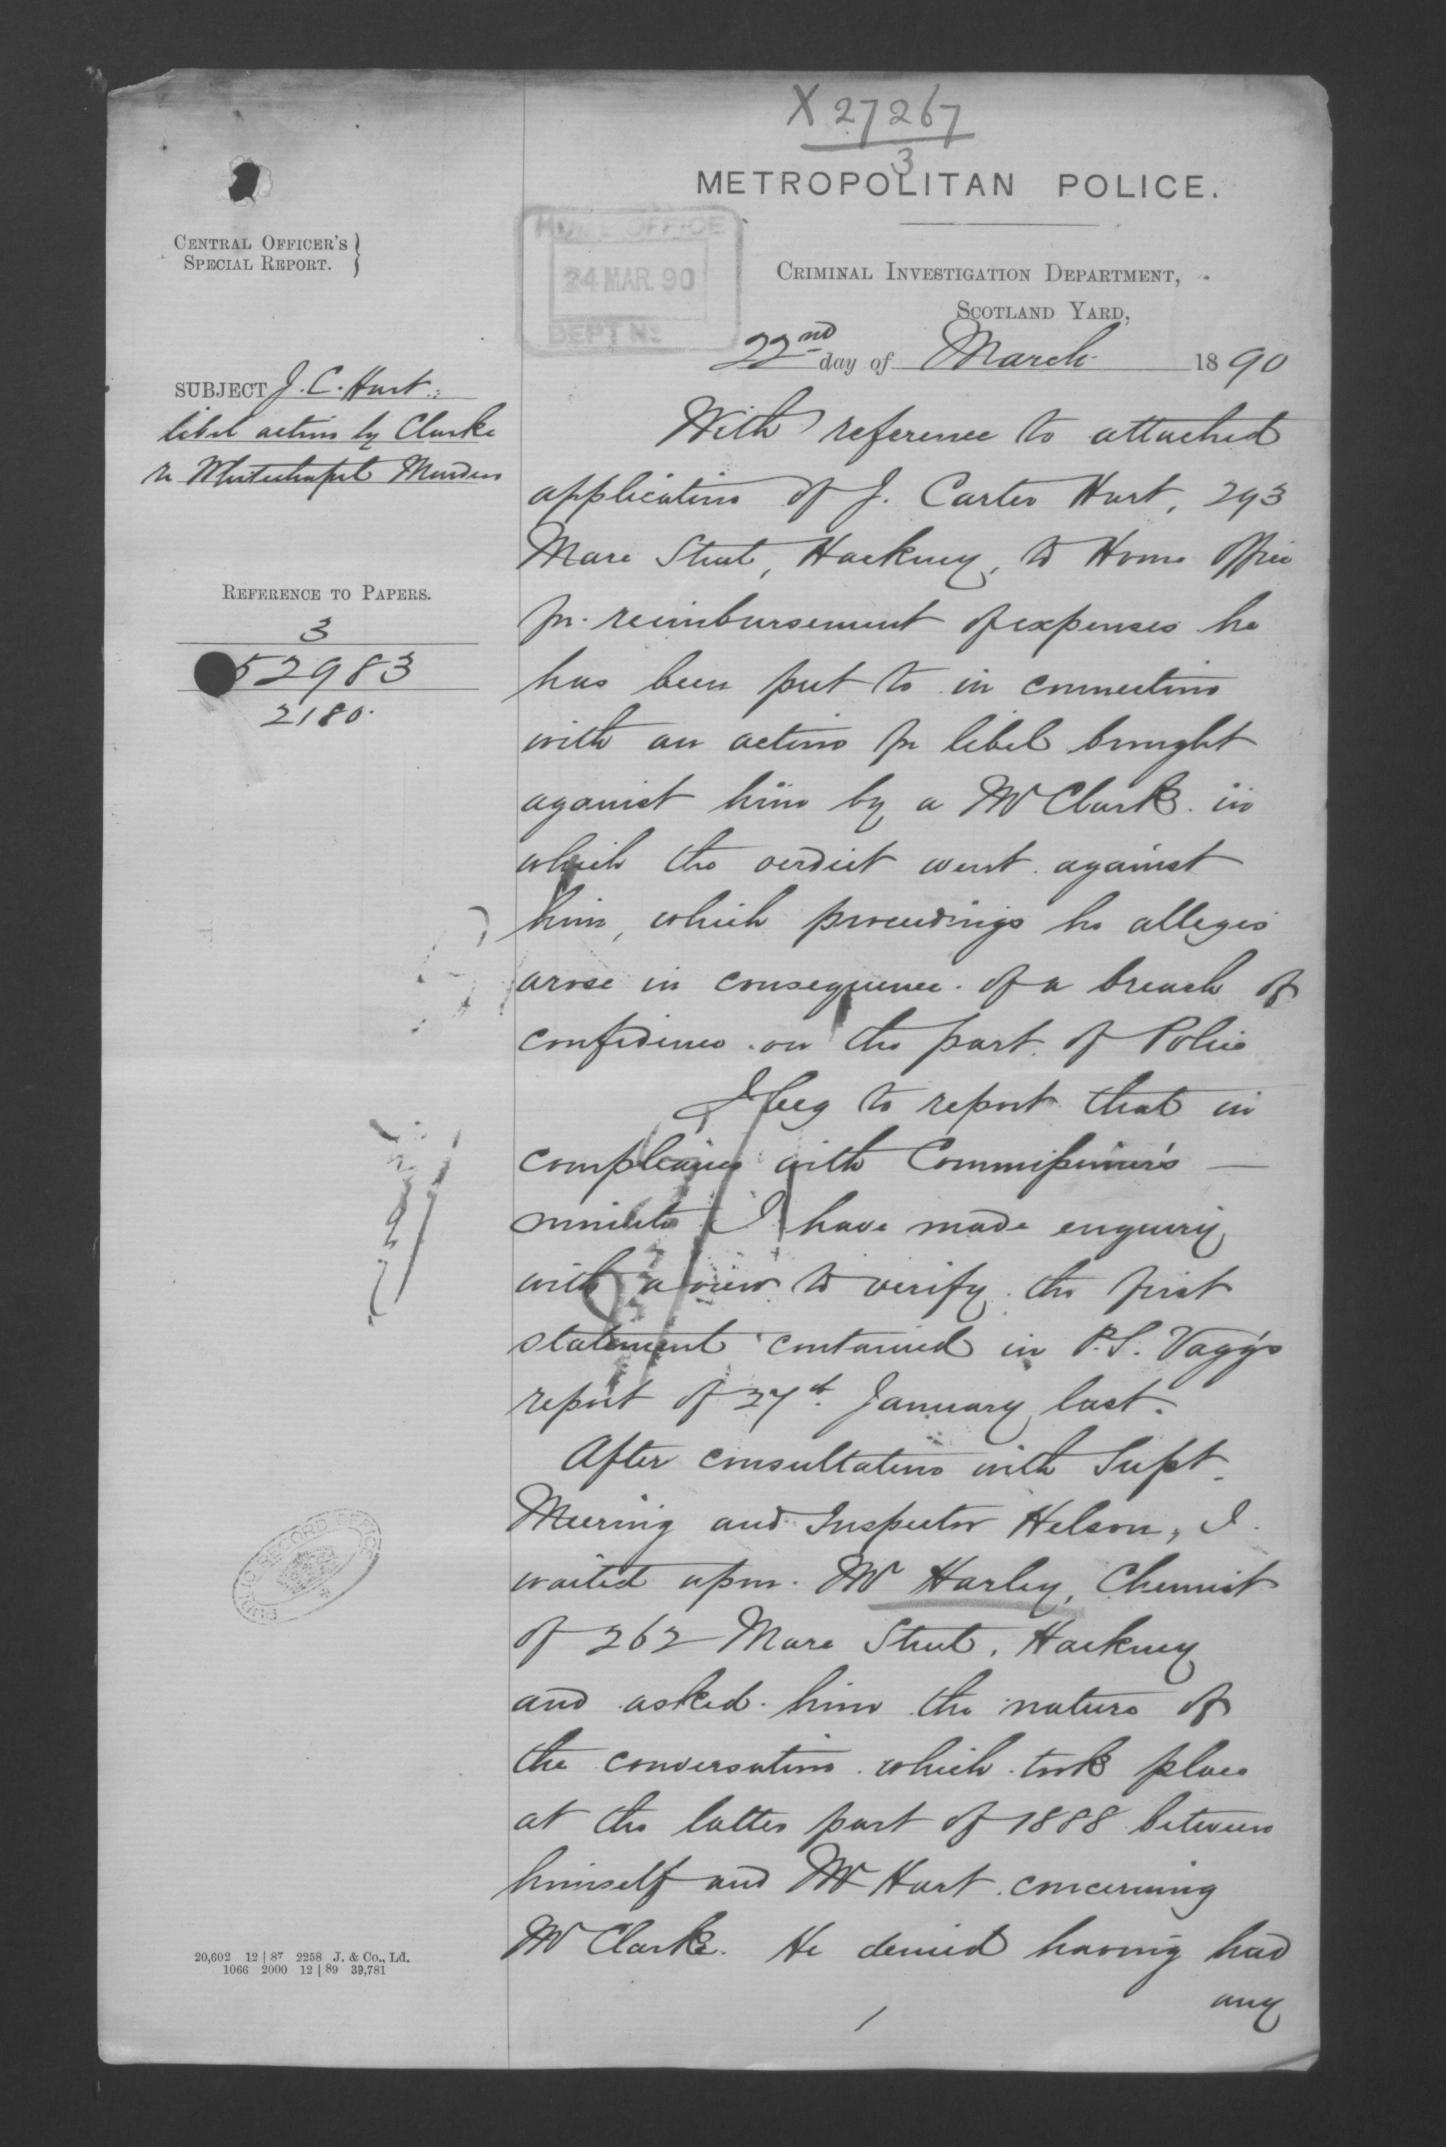 X 27267
3
METROPOLITAN POLICE.
CENTRAL OFFICER'S
SPECIAL REPORT.
HOME OFFICE
24 MAR. 90
DEPT No
CRIMINAL INVESTIGATION DEPARTMENT,
SCOTLAND YARD,
22nd day of March 1890
SUBJECT J. C. Hart:
libel action by Clarke
re Whitechapel Murders
REFERENCE TO PAPERS.
3
52983
2180.
With reference to attached
application of J. Carter Hart, 293
Mare Street, Hackney, to Home Office
for reimbursement of expenses he
has been put to in connection
with an action for libel brought
against him by a Mr Clarke in
which the verdict went against
him, which proceedings he alleges
arose in consequence of a breach of
confidence on the part of Police
I beg to report that in
compliance with Commissioner's —
minute I have made enquiry
with a view to verify the first
statement contained in P.S. Vagg's
report of 27th January last.
After consultation with Supt.
Meering and Inspector Helson, I
waited upon Mr Harley, Chemist
of 262 Mare Street, Hackney
and asked him the nature of
the conversation which took place
at the latter part of 1888 between
himself and Mr Hart concerning
Mr Clarke. He denied having had
any
1
PUBLIC RECORD OFFICE
20,602 12 | 87 2258 J. & Co., Ld.
1066 2000 12 | 89 39,781